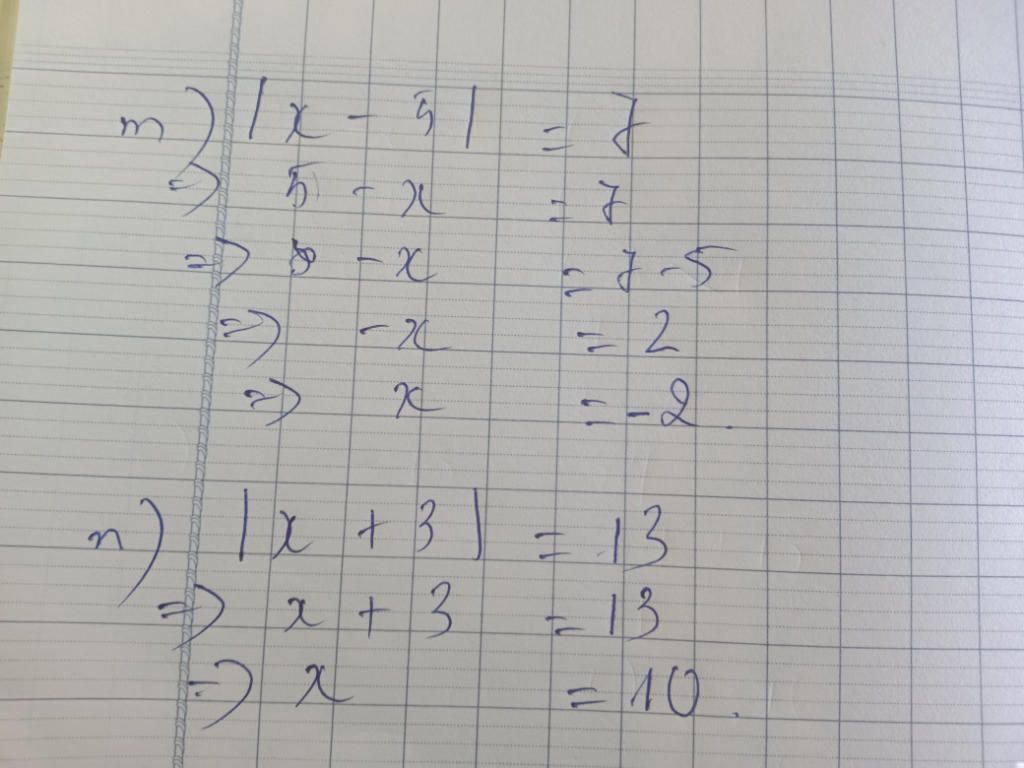 m) |x - 5| = 7
=> 5 - x = 7
=> -x = 7 - 5
=> -x = 2
=> x = -2.
n) |x + 3| = 13
=> x + 3 = 13
=> x = 10.